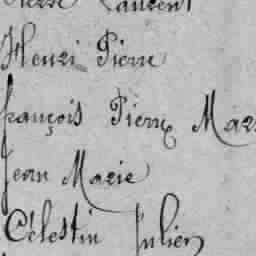 Pierre Laurent
Henri Pierre
françois Pierre Mar
Jean Marie
Célestin Julien